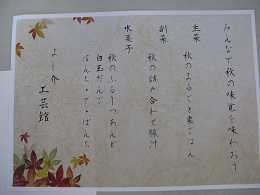 みんなで秋の味覚を味わおう
主菜
秋のまるごと栗ごはん
副菜
秋の詰め合わせ豚汁
水菓子
秋のふるーつあんど
白玉だんご
ぱんな・で・ぱんた
よし介工芸館